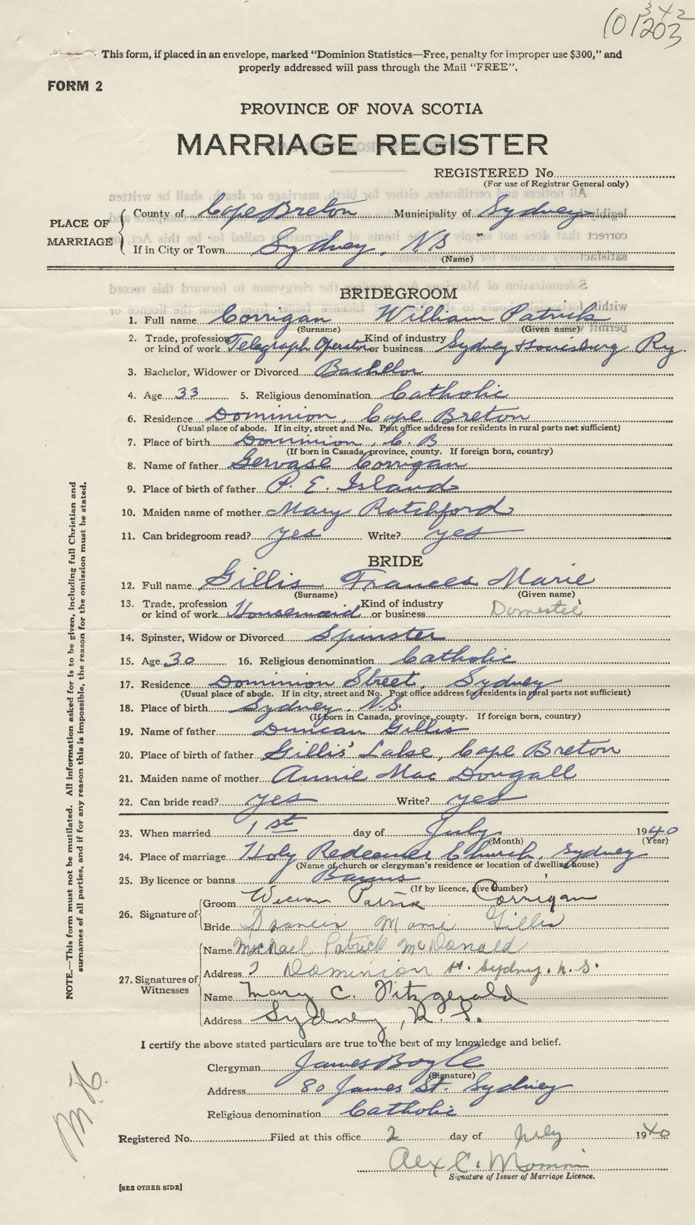 342
101203
This form, if placed in an envelope, marked "Dominion Statistics—Free, penalty for improper use $300," and
properly addressed will pass through the Mail "FREE".
FORM 2
PROVINCE OF NOVA SCOTIA
MARRIAGE REGISTER
REGISTERED No.
(For use of Registrar General only)
PLACE OF MARRIAGE
County of Cape Breton Municipality of Sydney
If in City or Town Sydney, NS "
(Name)
BRIDEGROOM
1. Full name Corrigan William Patrick
(Surname) (Given name)
2. Trade, profession or kind of work Telegraph Operator Kind of industry or business Sydney & Louisburg Ry.
3. Bachelor, Widower or Divorced Bachelor
4. Age 33 5. Religious denomination Catholic
6. Residence Dominion, Cape Breton
(Usual place of abode. If in city, street and No. Post office address for residents in rural parts not sufficient)
7. Place of birth Dominion, C. B
(If born in Canada, province, county. If foreign born, country)
8. Name of father Gervase Corrigan
9. Place of birth of father P. E. Island
10. Maiden name of mother Mary Ratchford
11. Can bridegroom read? yes Write? yes
BRIDE
12. Full name Gillis Frances Marie
(Surname) (Given name)
13. Trade, profession or kind of work Housemaid Kind of industry or business Domestic
14. Spinster, Widow or Divorced Spinster
15. Age 30 16. Religious denomination Catholic
17. Residence Dominion Street, Sydney
(Usual place of abode. If in city, street and No. Post office address for residents in rural parts not sufficient)
18. Place of birth Sydney N.S.
(If born in Canada, province, county. If foreign born, country)
19. Name of father Duncan Gillis
20. Place of birth of father Gillis' Lake, Cape Breton
21. Maiden name of mother Annie Mac Dougall
22. Can bride read? yes Write? yes
23. When married 1st day of July 1940
(Month) (Year)
24. Place of marriage Holy Redeemer Church, Sydney
(Name of church or clergyman's residence or location of dwelling house)
25. By licence or banns Banns
(If by licence, give number)
26. Signature of
Groom William Patrick Corrigan
Bride Frances Marie Gillis
27. Signatures of Witnesses
Name Michael Patrick McDonald
Address 7 Dominion St. Sydney. N.S.
Name Mary C. Fitzgerald
Address Sydney, N.S.
I certify the above stated particulars are true to the best of my knowledge and belief.
Clergyman James Boyle
(Signature)
Address 80 James St. Sydney
Religious denomination Catholic
Registered No. Filed at this office 2 day of July 1940
Alex C.
Signature of Issuer of Marriage Licence.
[SEE OTHER SIDE]
NOTE.—This form must not be mutilated. All information asked for is to be given, including full Christian and
surnames of all parties, and if for any reason this is impossible, the reason for the omission must be stated.